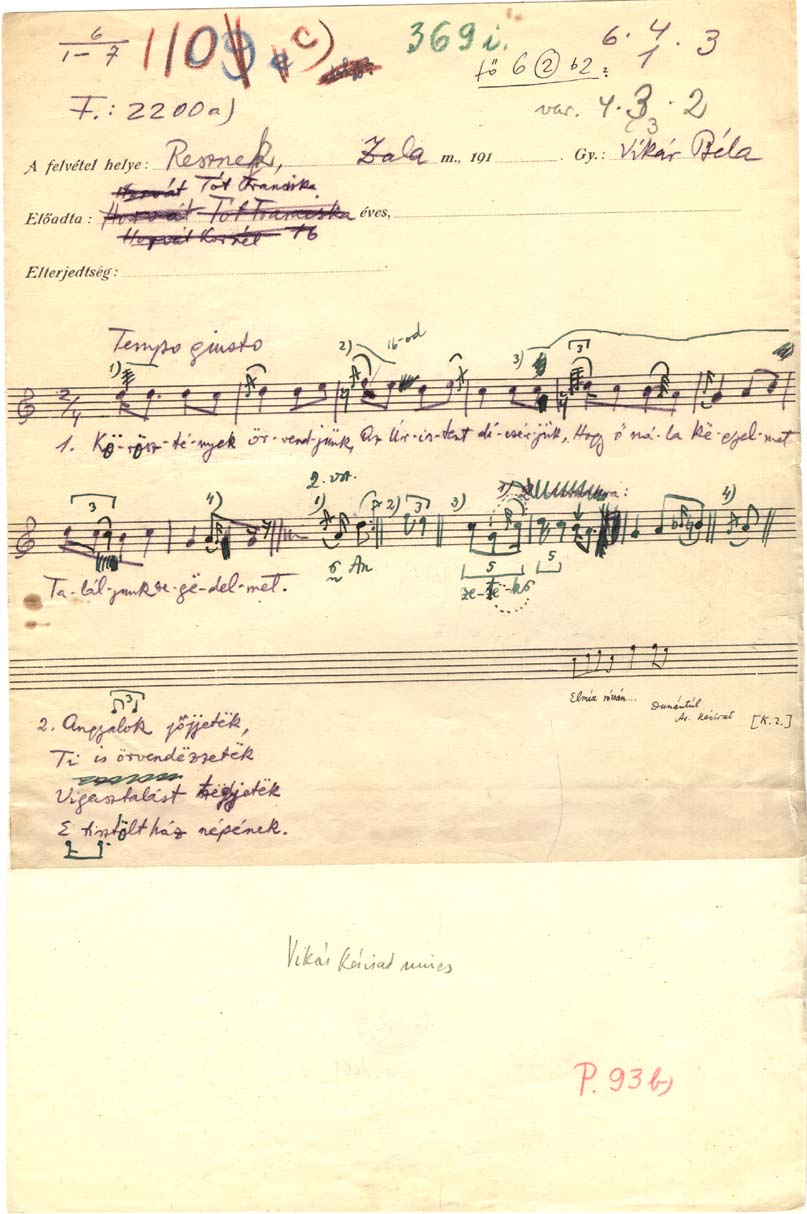 6
1-7
1109 c)
369 i.
fő 6 ② b2
6. 4/1 . 3
F.: 2200a)
var. 4. 3 . 2
A felvétel helye: Resznek, Zala m., 191 Gy.: Vikár Béla
Horvát Tót Franciska
Előadta: Horvát Tót Franciska éves,
Horvát Kornél 76
Elterjedtség:
Tempo giusto
1) 2) 16-od 3) 3
2/4
1. Kö-rösz-té-nyek ör-vend-jünk, Az Úr-is-tent di-csér-jük, Hogy ő ná-la kë-gyel-met
2. vsz.
3 4) 1) 2) 3 3) 4)
Ta-lál-junk se-gë-del-met.
Az
5 5
ze-té-kë
Elmúz rózsám...
Dunántúl
[K. Z.]
3
2. Angyalok jőjjetëk,
Ti is örvendëzzetëk
Vigasztalást tëgyjetëk
E tisztölt ház népének.
Vikár kézirat nincs
P. 93b)